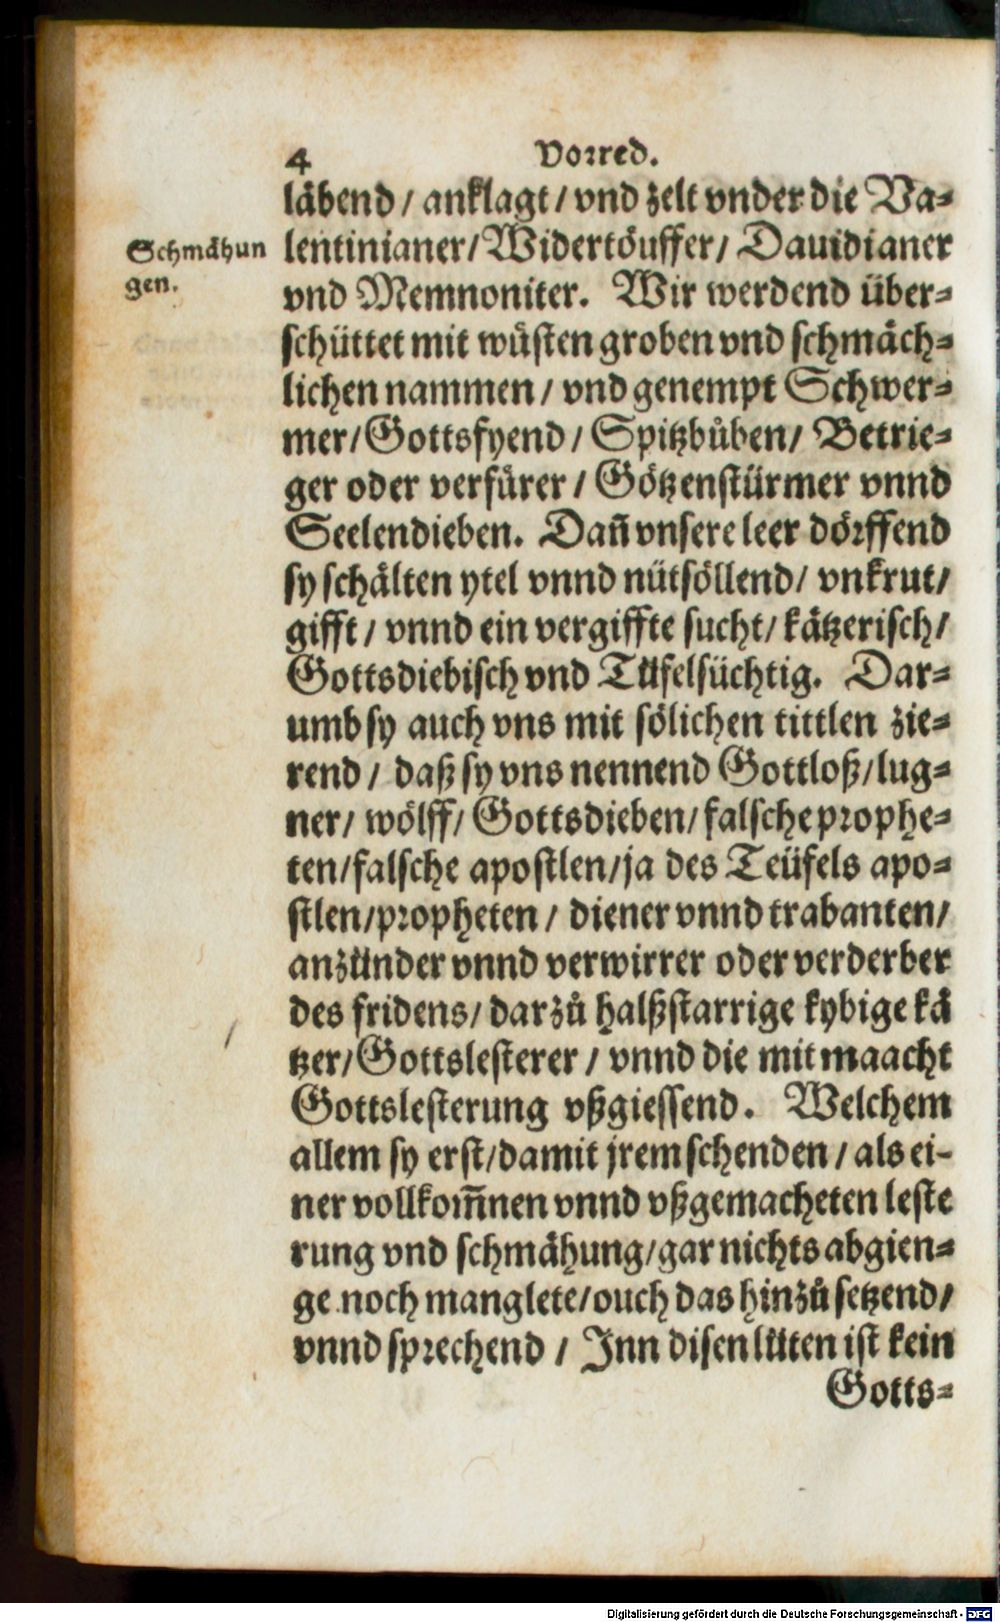 4 Vorred.
läbend / anklagt / vnd zelt vnder die Va-
Schmähun
gen.
lentinianer / Widertöuffer / Dauidianer
vnd Memnoniter. Wir werdend über-
schüttet mit wüsten groben vnd schmäch-
lichen nammen / vnd genempt Schwer-
mer / Gottsfyend / Spitzbůben / Betrie-
ger oder verfürer / Götzenstürmer vnnd
Seelendieben. Dañ vnsere leer dörffend
sy schälten ytel vnnd nütsöllend / vnkrut /
gifft / vnnd ein vergiffte sucht / kätzerisch /
Gottsdiebisch vnd Tüfelsüchtig. Dar-
umb sy auch vns mit sölichen tittlen zie-
rend / daß sy vns nennend Gottloß / lug-
ner / wölff / Gottsdieben / falsche prophe-
ten / falsche apostlen / ja des Teüfels apo-
stlen / propheten / diener vnnd trabanten /
anzünder vnnd verwirrer oder verderber
des fridens / darzů halßstarrige kybige kä
tzer / Gottslesterer / vnnd die mit maacht
Gottslesterung vßgiessend. Welchem
allem sy erst / damit jrem schenden / als ei-
ner vollkom̄nen vnnd vßgemacheten leste
rung vnd schmähung / gar nichts abgien-
ge noch manglete / ouch das hinzů setzend /
vnnd sprechend / Jnn disen lüten ist kein
Gotts-
Digitalisierung gefördert durch die Deutsche Forschungsgemeinschaft - DFG